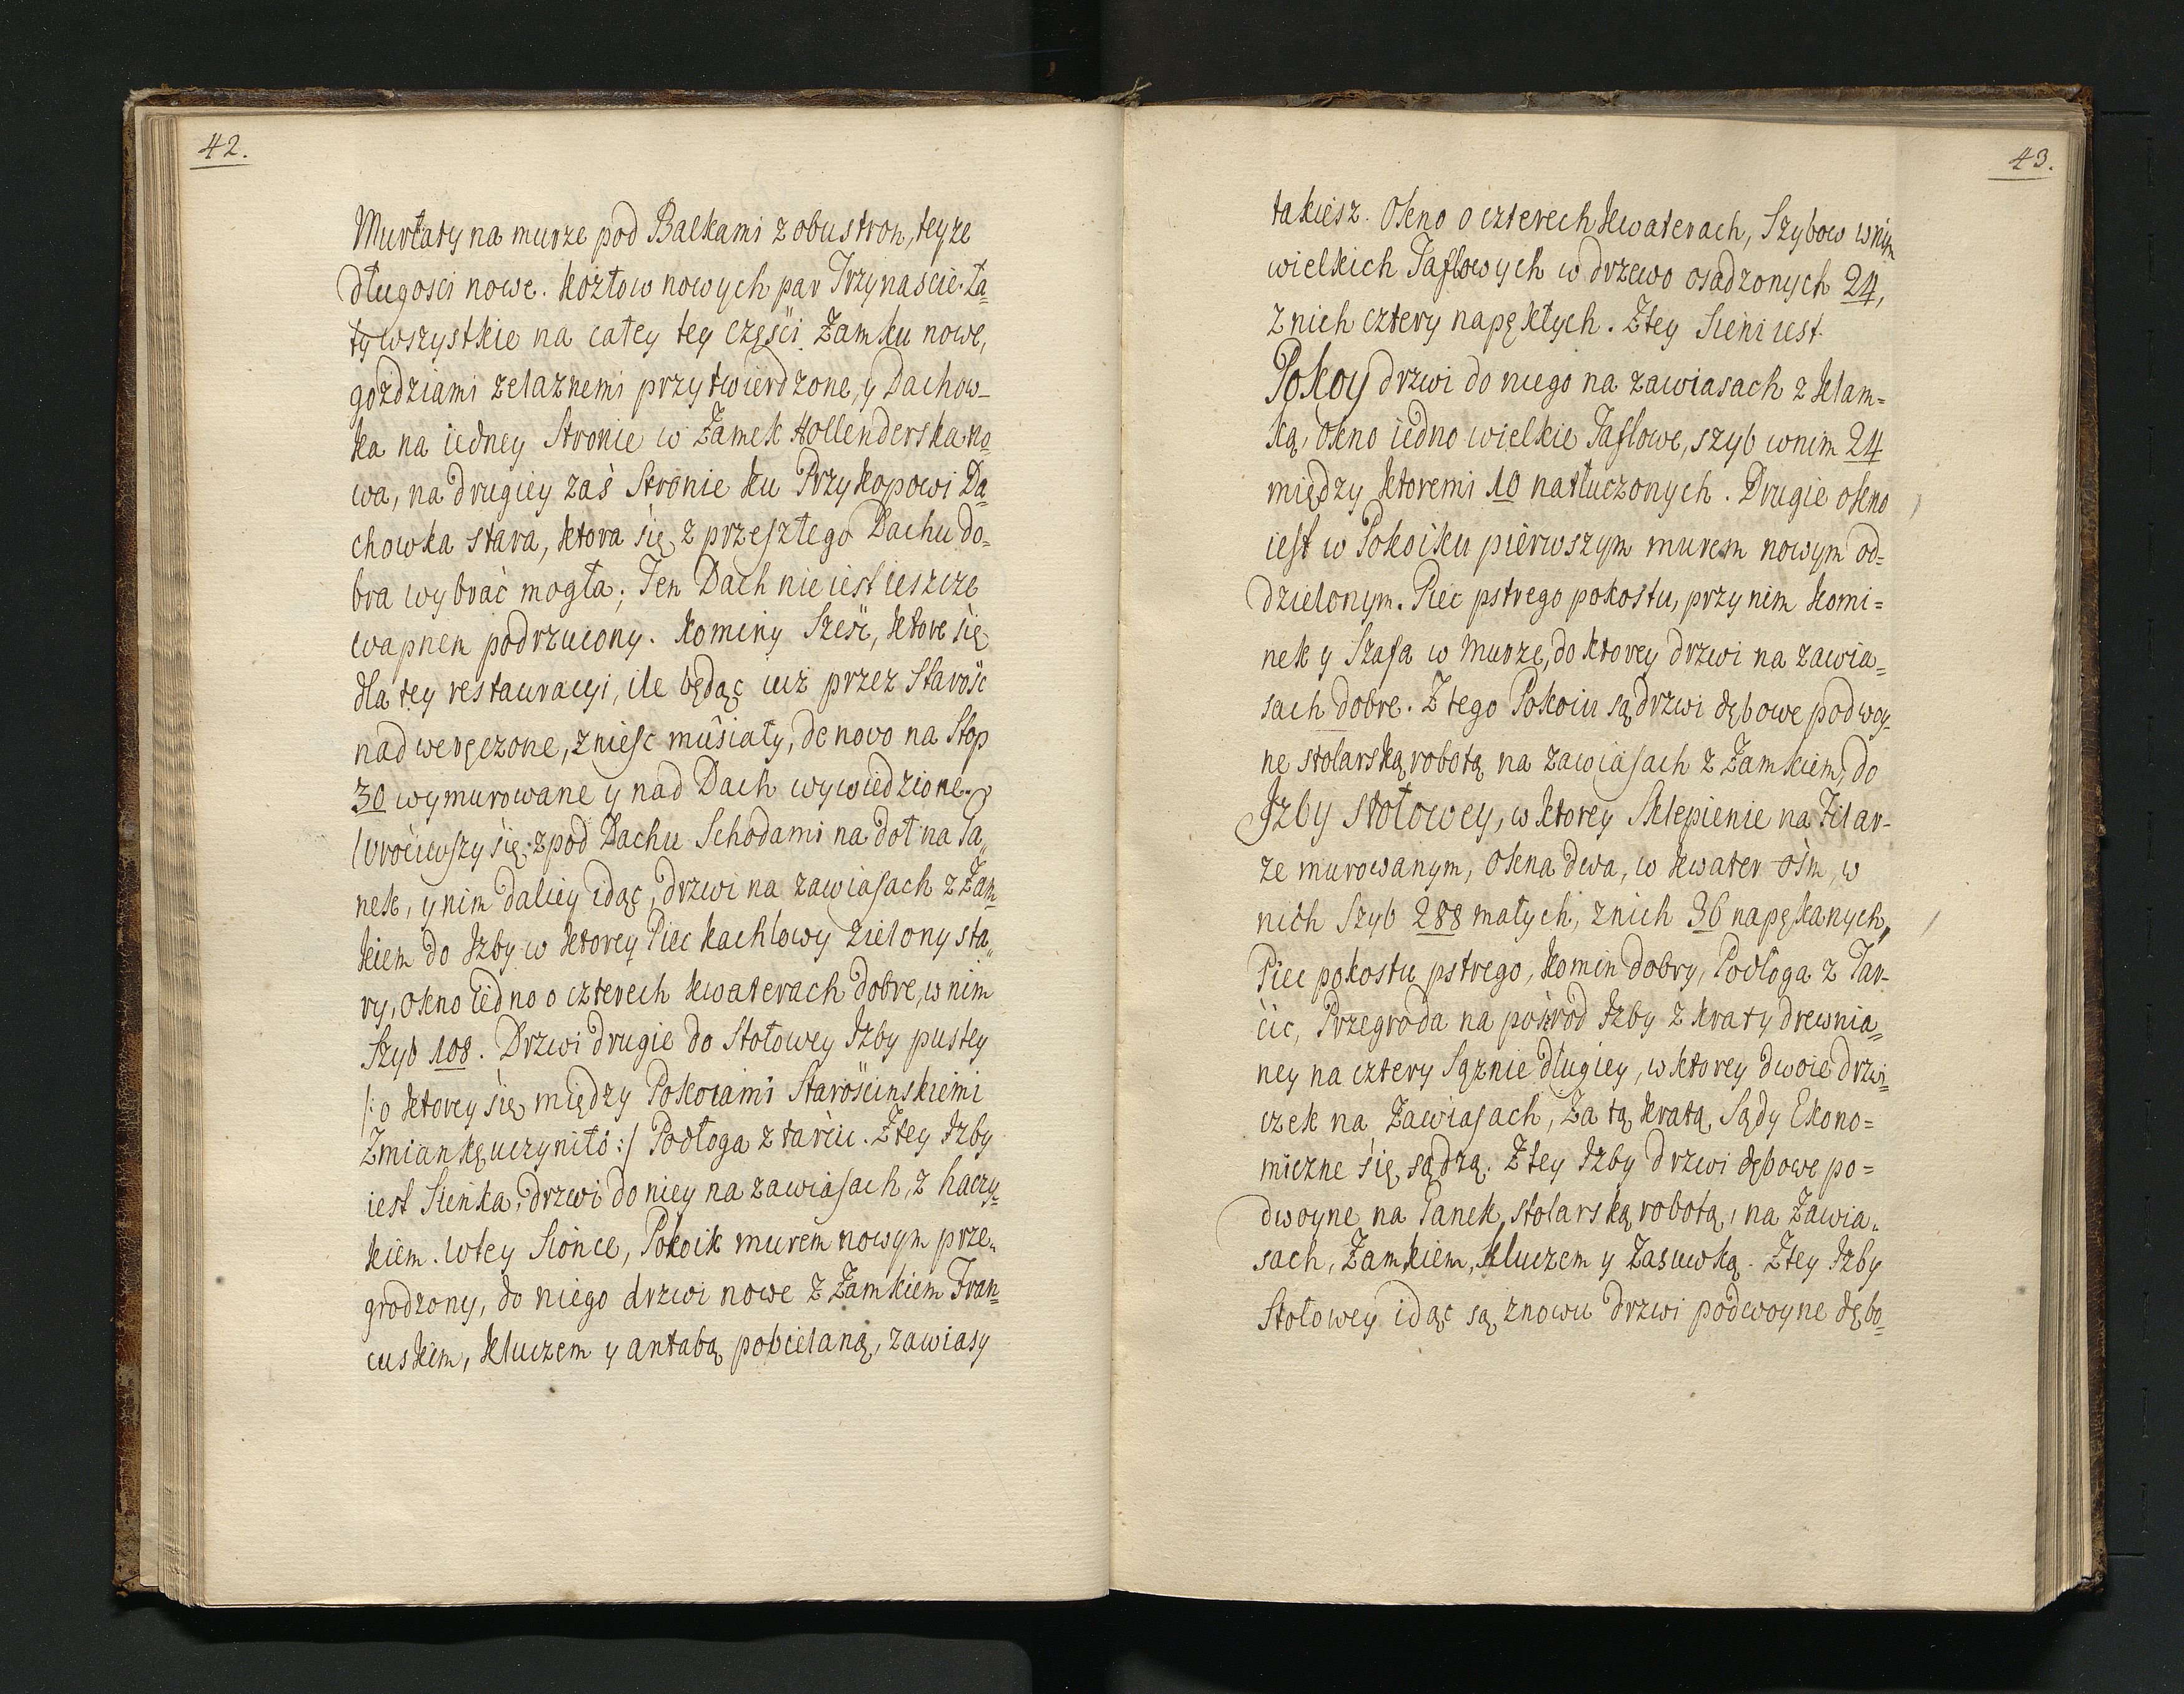 42.
Murłaty na murze pod Balkami z obu stron, teyze
długosci nowe. Kozłow nowych par Trzynascie. Ła=
ty wszystkie na całey tey części Zamku nowe,
gozdziami zelaznemi przytwierdzone, y Dachow-
ka na iedney Stronie w Zamek Hollenderska no=
wa, na drugiey zaś Stronie ku Przykopowi Da=
chowka stara, ktora się z przeszłego Dachu do=
bra wybrać mogła; Ten Dach nie iest ieszcze
wapnem podrzucony. Kominy Sześć, ktore się
dla tey restauracyi, ile będąc iuż przez Starość
nadweręczone, znieść musiały, de novo na Stop
30 wymurowane y nad Dach wywiedzione.
Wrociwszy się zpod Dachu Schodami na doł na Ga„
nek, y nim daliey idąc, drzwi na zawiasach z Zam=
kiem do Izby w ktorey Piec kachlowy zielony sta„
ry, Okno iedno o czterech kwaterach dobre, w nim
Szyb 108. Drzwi drugie do Stołowey Izby pustey
/: o ktorey się między Pokoiami Starościnskiemi
Zmiankę uczyniło :/ Podłoga z tarcic. Z tey Izby
iest Sieńka, drzwi do niey na zawiasach, z haczy=
kiem. W tey Sionce, Pokoik murem nowym prze„
grodzony, do niego drzwi nowe z Zamkiem Fran=
cuskim, kluczem y antabą pobielaną, zawiasy
43.
takiesz. Okno o czterech kwaterach, Szybow w nim
wielkich Taflowych w drzewo osadzonych 24,
z nich cztery napękłych. Z tey Sieni iest
Pokoy drzwi do niego na zawiasach z klam=
ką, Okno iedno wielkie Taflowe, szyb w nim 24
między ktoremi 10 natłuczonych. Drugie okno
iest w Pokoiku pierwszym murem nowym od=
dzielonym. Piec pstrego pokostu, przy nim komi=
nek y Szafa w Murze, do ktorey drzwi na zawia=
sach dobre. Z tego Pokoiu są drzwi dębowe podwoy=
ne stolarską robotą na zawiasach z Zamkiem, do
Izby Stołowey, w ktorey Sklepienie na Filar-
ze murowanym, Okna dwa, w kwater ośm, w
nich Szyb 288 małych, z nich 36 napękanych,
Piec pokostu pstrego, Komin dobry, Podłoga z Tar-
cic, Przegroda na pośrod Izby z kraty drewnia=
ney na cztery Sążnie długiey, w ktorey dwoie drzwi=
czek na Zawiasach, Za tą kratą, Sądy Ekono=
miczne się sądzą. Z tey Izby drzwi dębowe po=
dwoyne na Ganek, stolarską robotą, na Zawia„
sach, Zamkiem, kluczem y Zasuwką. Z tey Izby
Stołowey idąc są znowu drzwi podwoyne dębo=